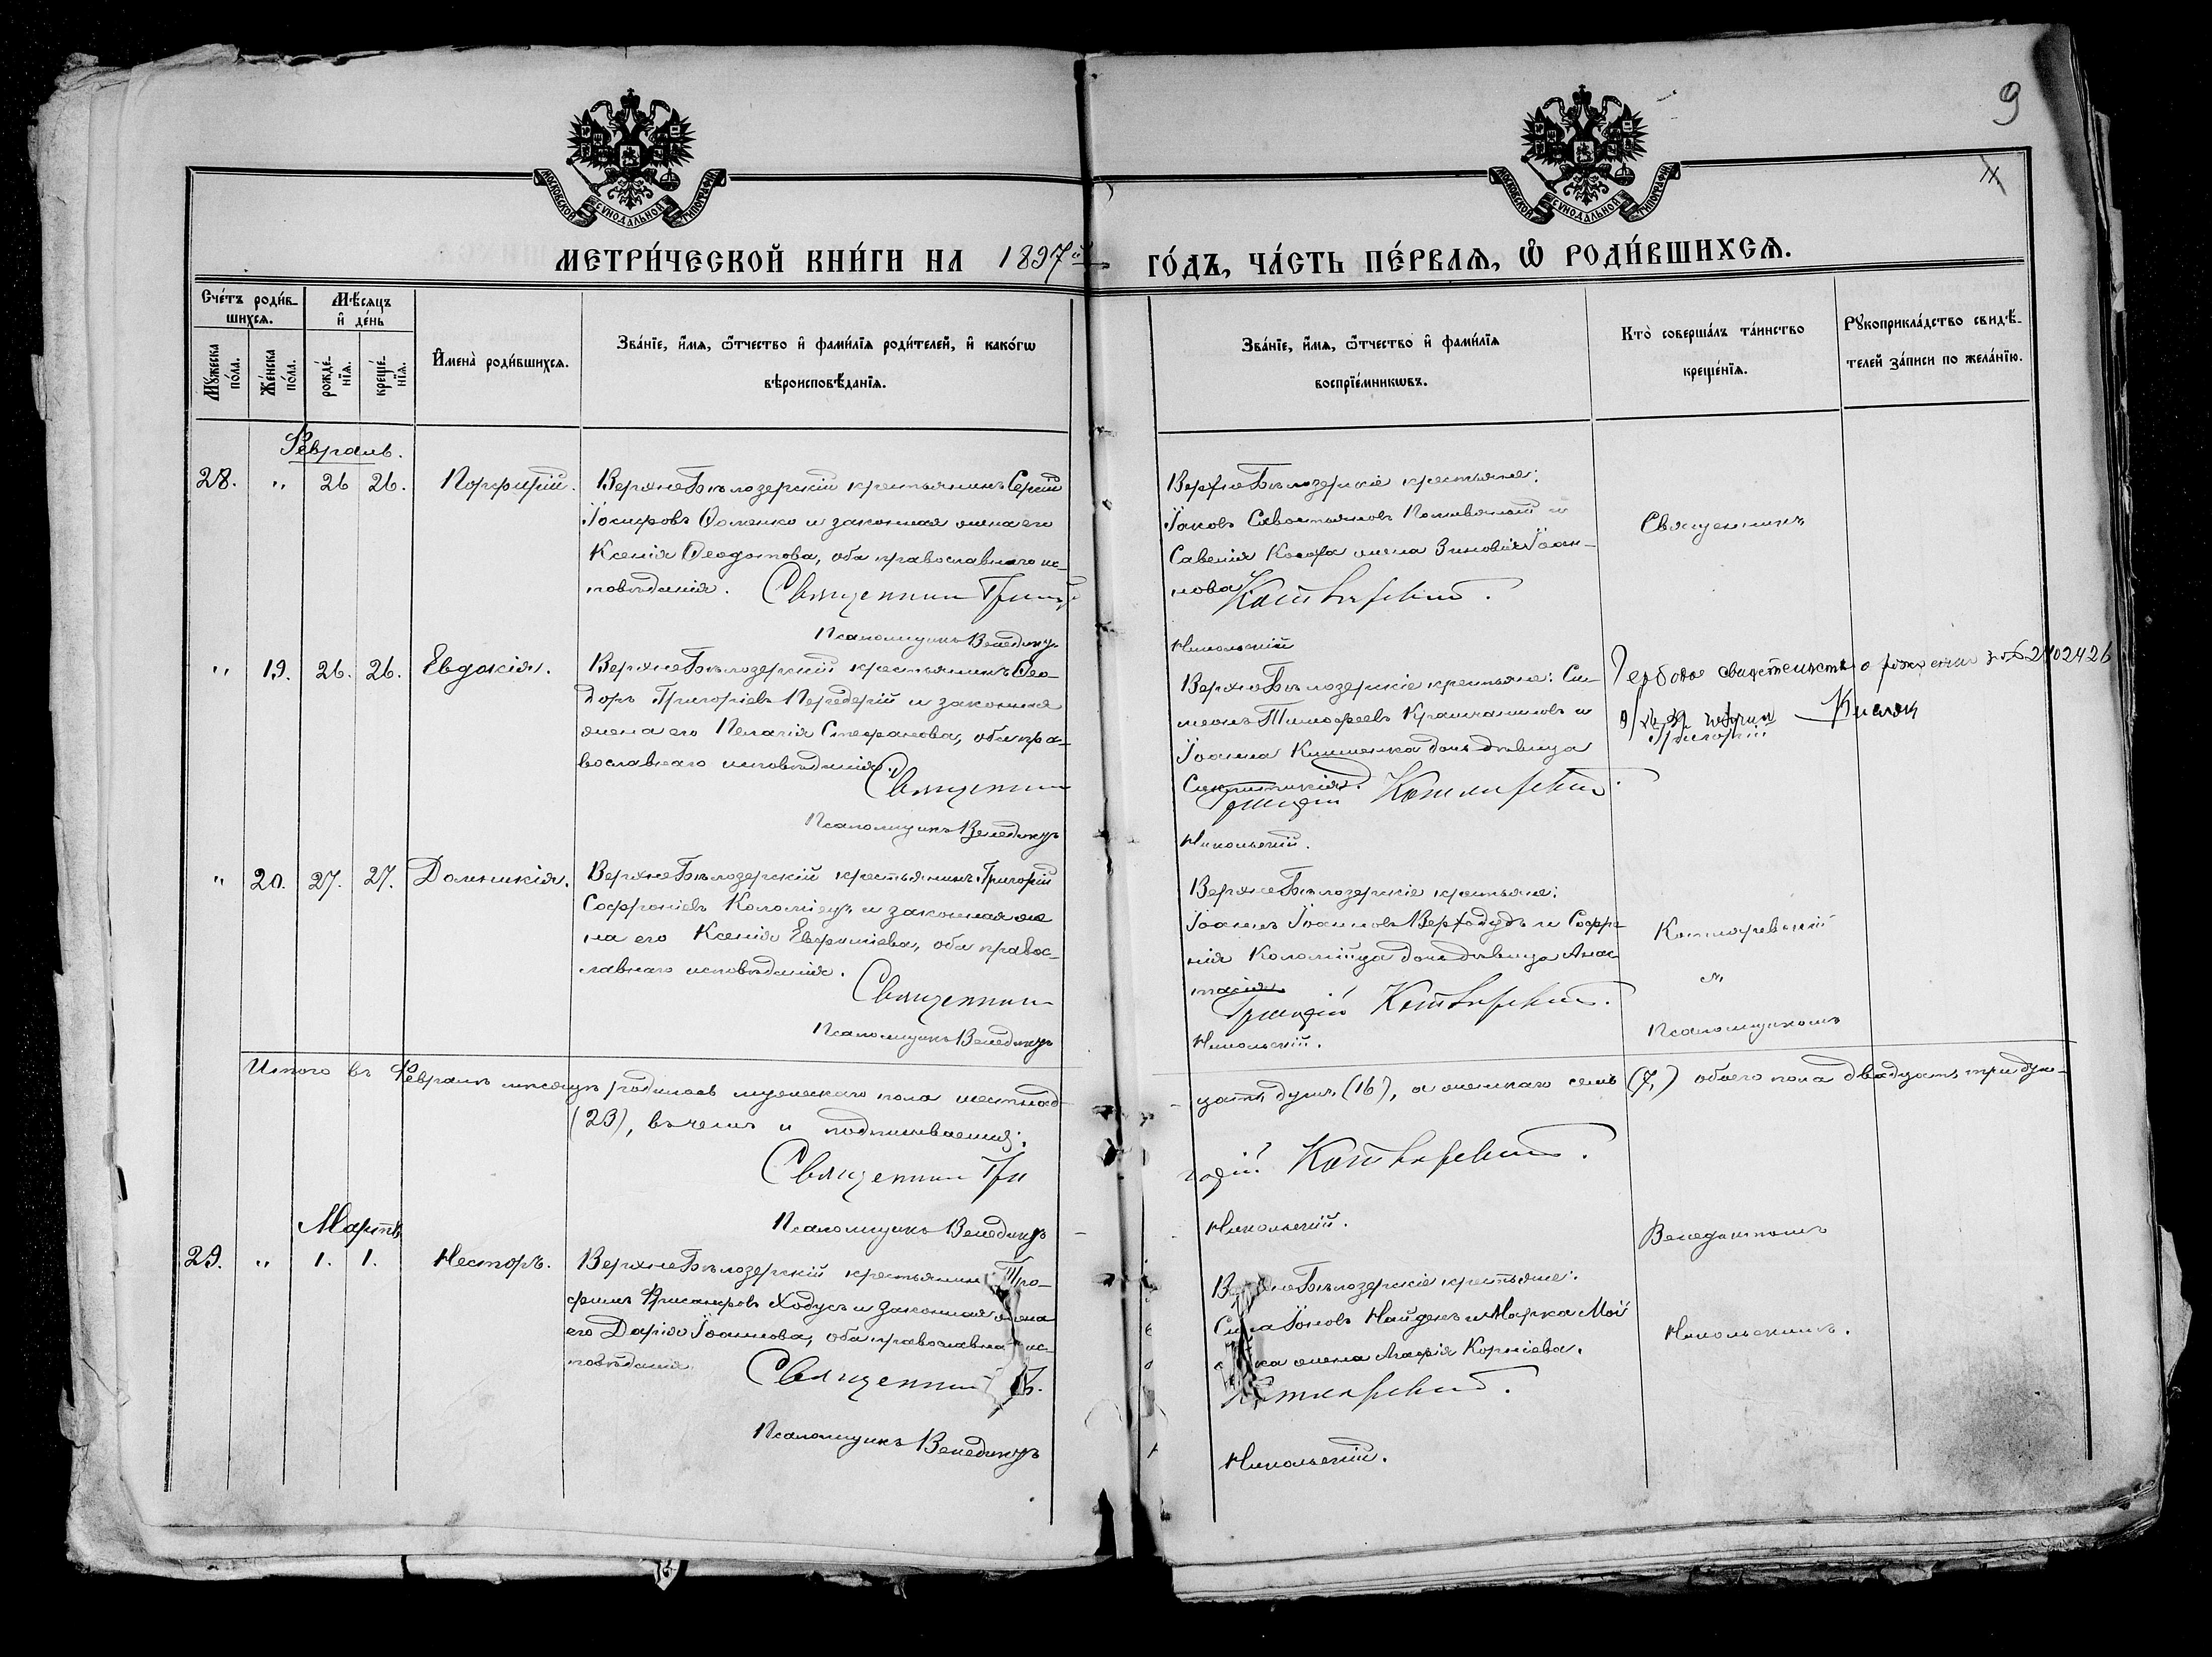 9
11
МОСКОВСКОЙ СѴНОДАЛЬНОЙ ТИПОГРАФІИ
МОСКОВСКОЙ СѴНОДАЛЬНОЙ ТИПОГРАФІИ
МЕТРИ́ЧЕСКОЙ КНИ́ГИ НА 1897й
ГО́ДЪ, ЧА́СТЬ ПЕ́РВАѦ, Ѡ҆ РОДИ́ВШИХСѦ.
Сче́тъ роди́в-
шихсѧ.
Мꙋ́жеска по́ла.
Же́нска по́ла.
Мѣ́сѧцъ
и҆ де́нь
рожде́-нїѧ.
креще́-нїѧ.
И҆мена̀ роди́вшихсѧ.
Зва́нїе, и҆́мѧ, ѻ҆́тчество и҆ фами́лїѧ роди́телей, и҆ како́гѡ
вѣроисповѣ́данїѧ.
Зва́нїе, и҆́мѧ, ѻ҆́тчество и҆ фами́лїѧ
воспрїе́мникѡвъ.
Кто̀ соверша́лъ та́инство
креще́нїѧ.
Рꙋкоприкла́дство свидѣ́-
телей за́писи по жела́нїю.
Февраль.
28. " 26 26. Порфирій.
ВерхнеБѣлозерскій крестьянинъ Сергій
Іосифовъ Ѳоменко и законная жена его
Ксенія Ѳеодотова, оба православнаго ис-
повѣданія. Священникъ
Псаломщикъ Венедиктъ
ВерхнеБѣлозерскіе крестьяне:
Іаковъ Савостьяновъ и
Савелія жена Зиновія Іоан-
нова Котляревскій.
Никольскій
Священникъ
" 19. 26. 26. Евдокія.
ВерхнеБѣлозерскій крестьянинъ Ѳео-
доръ Григоріевъ Передерій и законная
жена его Пелагія Стефанова, оба пра-
вославнаго исповѣданія.
Священникъ
Псаломщикъ Венедиктъ
ВерхнеБѣлозерскіе крестьяне: Си-
меонъ Тимофеевъ и
Іоанна дочь дѣвица
Синклитикія.
Григорій Котляревскій.
Никольскій.
Гербовое свидетельство о рождении за № 2402426
Григорій
" 20. 27. 27. Домникія.
ВерхнеБѣлозерскій крестьянинъ Григорій
Софроніевъ Коломіецъ и законная же
на его Ксенія Евфиміева, оба правос-
лавнаго исповѣданія.
Священникъ
Псаломщикъ Венедиктъ
ВерхнеБѣлозерскіе крестьяне:
Іоаннъ Іоанновъ Верходудъ и Софро-
нія Коломійца дочь дѣвица Анас
тасія.
Григорій Котляревскій.
Никольскій.
Котляревскій
и
Псаломщикомъ
Итого въ Февралѣ мѣсяцѣ родилось мужескаго пола шестнад-
цать душъ (16), а женскаго семь (7,) обоего пола двадцать три душ-
(23), въ чемъ и подписываемся:
Священникъ Гри
горій Котляревскій.
Псаломщикъ Венедиктъ
Никольскій.
Мартъ
29. " 1. 1. Несторъ.
ВерхнеБѣлозерскій крестьянинъ Тро-
фимъ Ходусъ и законная жена
его Дарія Іоаннова, оба православна ис-
повѣданія Священникъ Г.
Псаломщикъ Венедиктъ
ВерхнеБѣлозерскіе крестьяне:
Іоновъ Найденъ и Марка Мой
ка жена Агафія Корніева.
Котляревскій.
Никольскій.
Венедиктомъ
Никольскимъ.